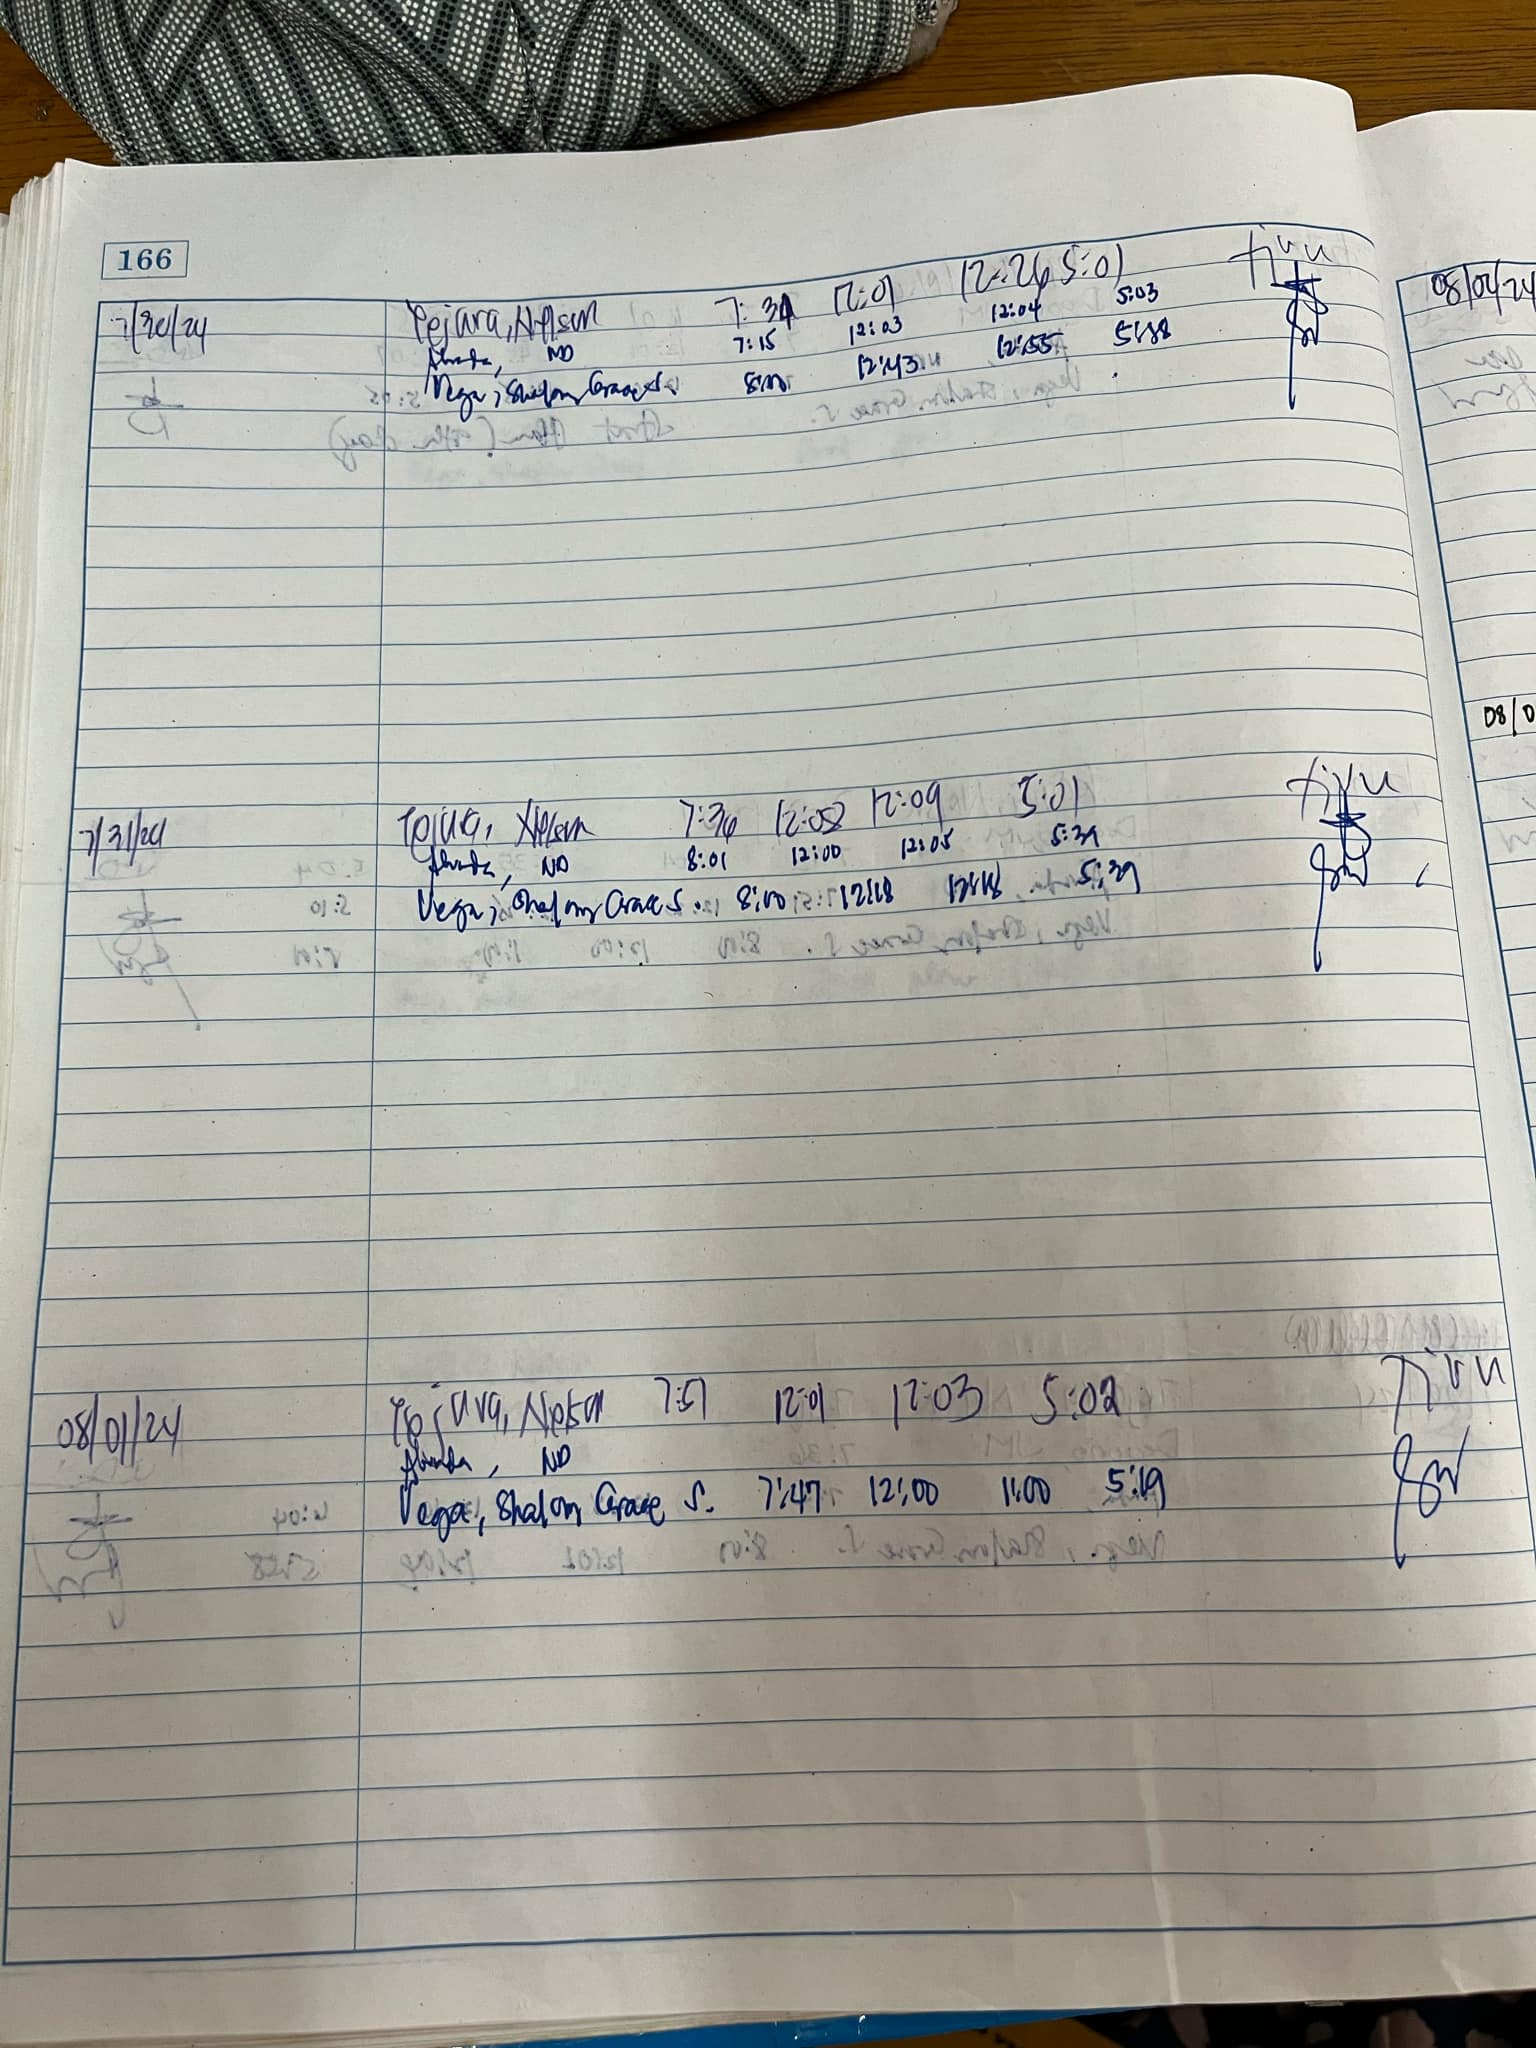 166
7/30/24 Tejara, Nelson 7:34 12:01 12:26 5:01
Abunda, ND 7:15 12:03 12:04 5:03
Vega, Shalom Grace S. 8:00 12:43 12:55 5:38
08/02/24
7/31/24 Tejara, Nelson 7:36 12:08 12:09 5:01
Abunda, ND 8:01 12:00 12:05 5:39
Vega, Shalom Grace S. 8:00 12:18 12:18 5:39
08/0
08/01/24 Tejara, Nelson 7:51 12:01 12:03 5:02
Abunda, ND
Vega, Shalom Grace S. 7:47 12:00 1:00 5:19